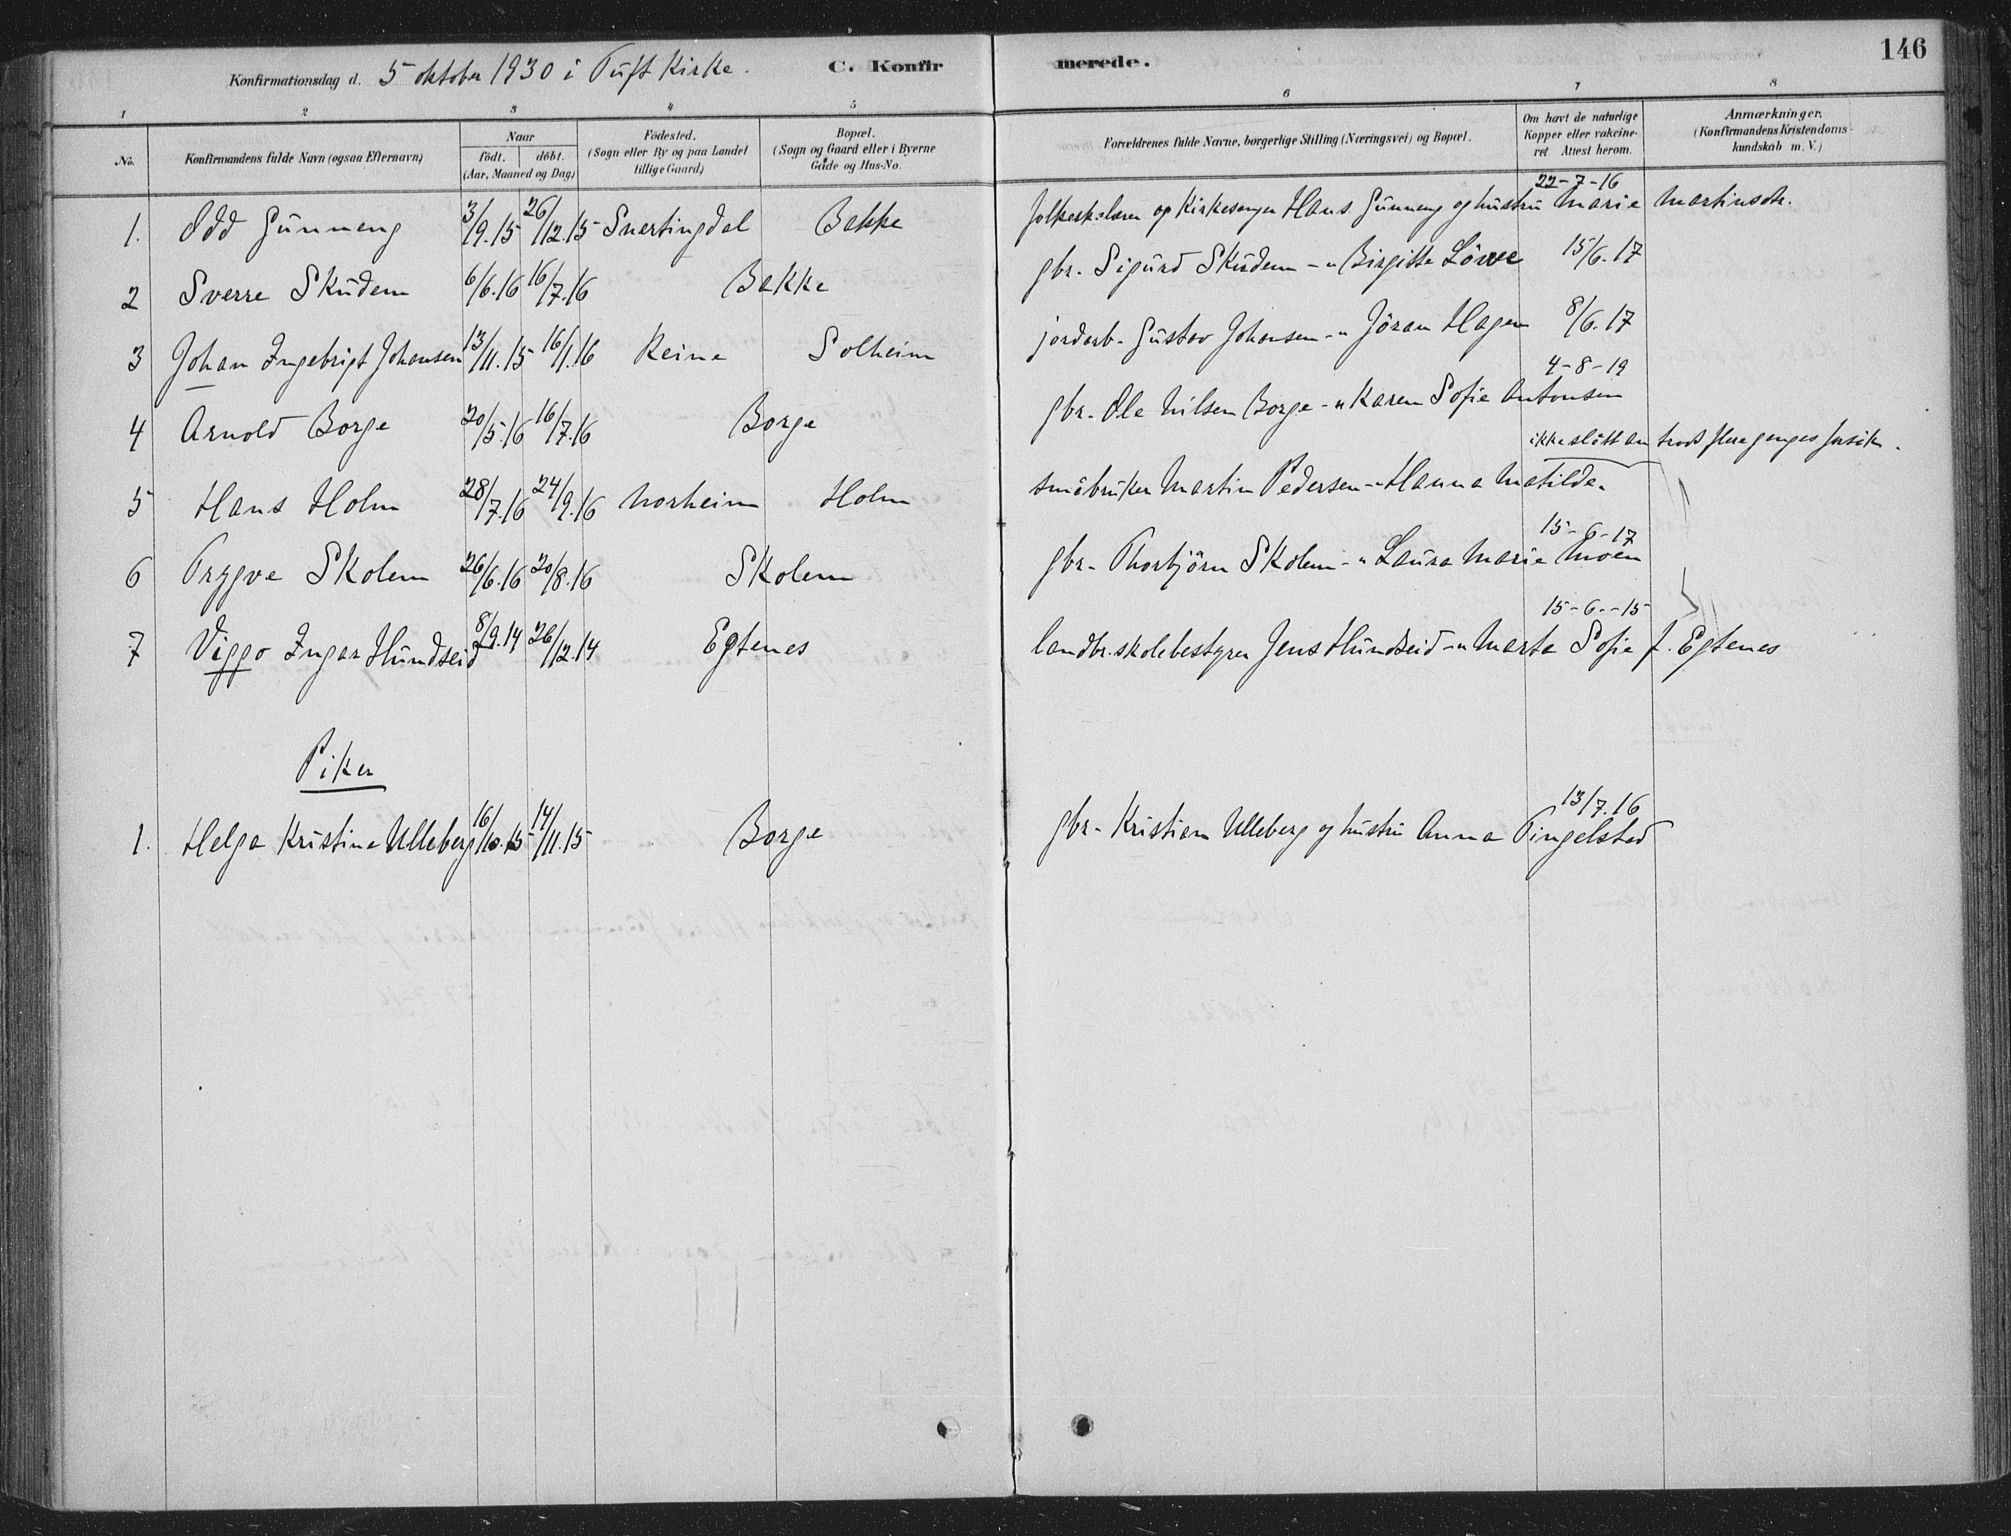 146
Konfirmationsdag d. 5 oktober 1930 i Tuft Kirke.
C. Konfirmerede.
1 2 3 4 5 6 7 8
No.
Konfirmandens fulde Navn (ogsaa Efternavn)
Naar
födt. döbt.
(Aar, Maaned og Dag)
Födested.
(Sogn eller By og paa Landet
tillige Gaard)
Bopæl.
(Sogn og Gaard eller i Byerne
Gade og Hus-No.
Forældrenes fulde Navne, borgerlige Stilling (Næringsvei) og Bopæl.
Om havt de naturlige
Kopper eller vakcine-
ret Attest herom.
Anmærkninger.
(Konfirmandens Kristendoms-
kundskab m. V.)
22-7-16
1. Odd Gunneng 3/9.15 26/12.15 Snertingdal Bakke folkesk.lærer og Kirkesanger Hans Gunneng og hustru Marie Martinsdtr.
2 Sverre Skudem 6/6.16 16/7.16 Bakke gbr. Sigurd Skudem -"- Birgitte Löwe 15/6.17
3 Johan Ingebrigt Johansen 13/11.15 16/1.16 Reine Solheim jordarb. Gustav Johansen -"- Jöran Hagen 8/6.17
4-8-19
4 Arnold Borge 20/5.16 16/7.16 Borge gbr. Ole Nilsen Borge -"- Karen Sofie Antonsen
ikke slått an trods flere ganges forsök.
5 Hans Holm 28/7.16 24/9.16 Norheim Holm småbruker Martin Pedersen -"- Hanna Matilde.
15-6-17
6 Trygve Skolem 26/6.16 20/8.16 Skolem gbr. Thorbjörn Skolem -"- Laura Marie Moen
15-6-15
7 Viggo Ingar Hundseid 8/9.14 26/12.14 Egtenes landbr.skolebestyrer Jens Hundseid -"- Marta Sofie f. Egtenes
Piker
13/7.16
1. Helga Kristine Ulleberg 16/10.15 14/11.15 Borge gbr. Kristian Ulleberg og hustru Anna Tingelstad